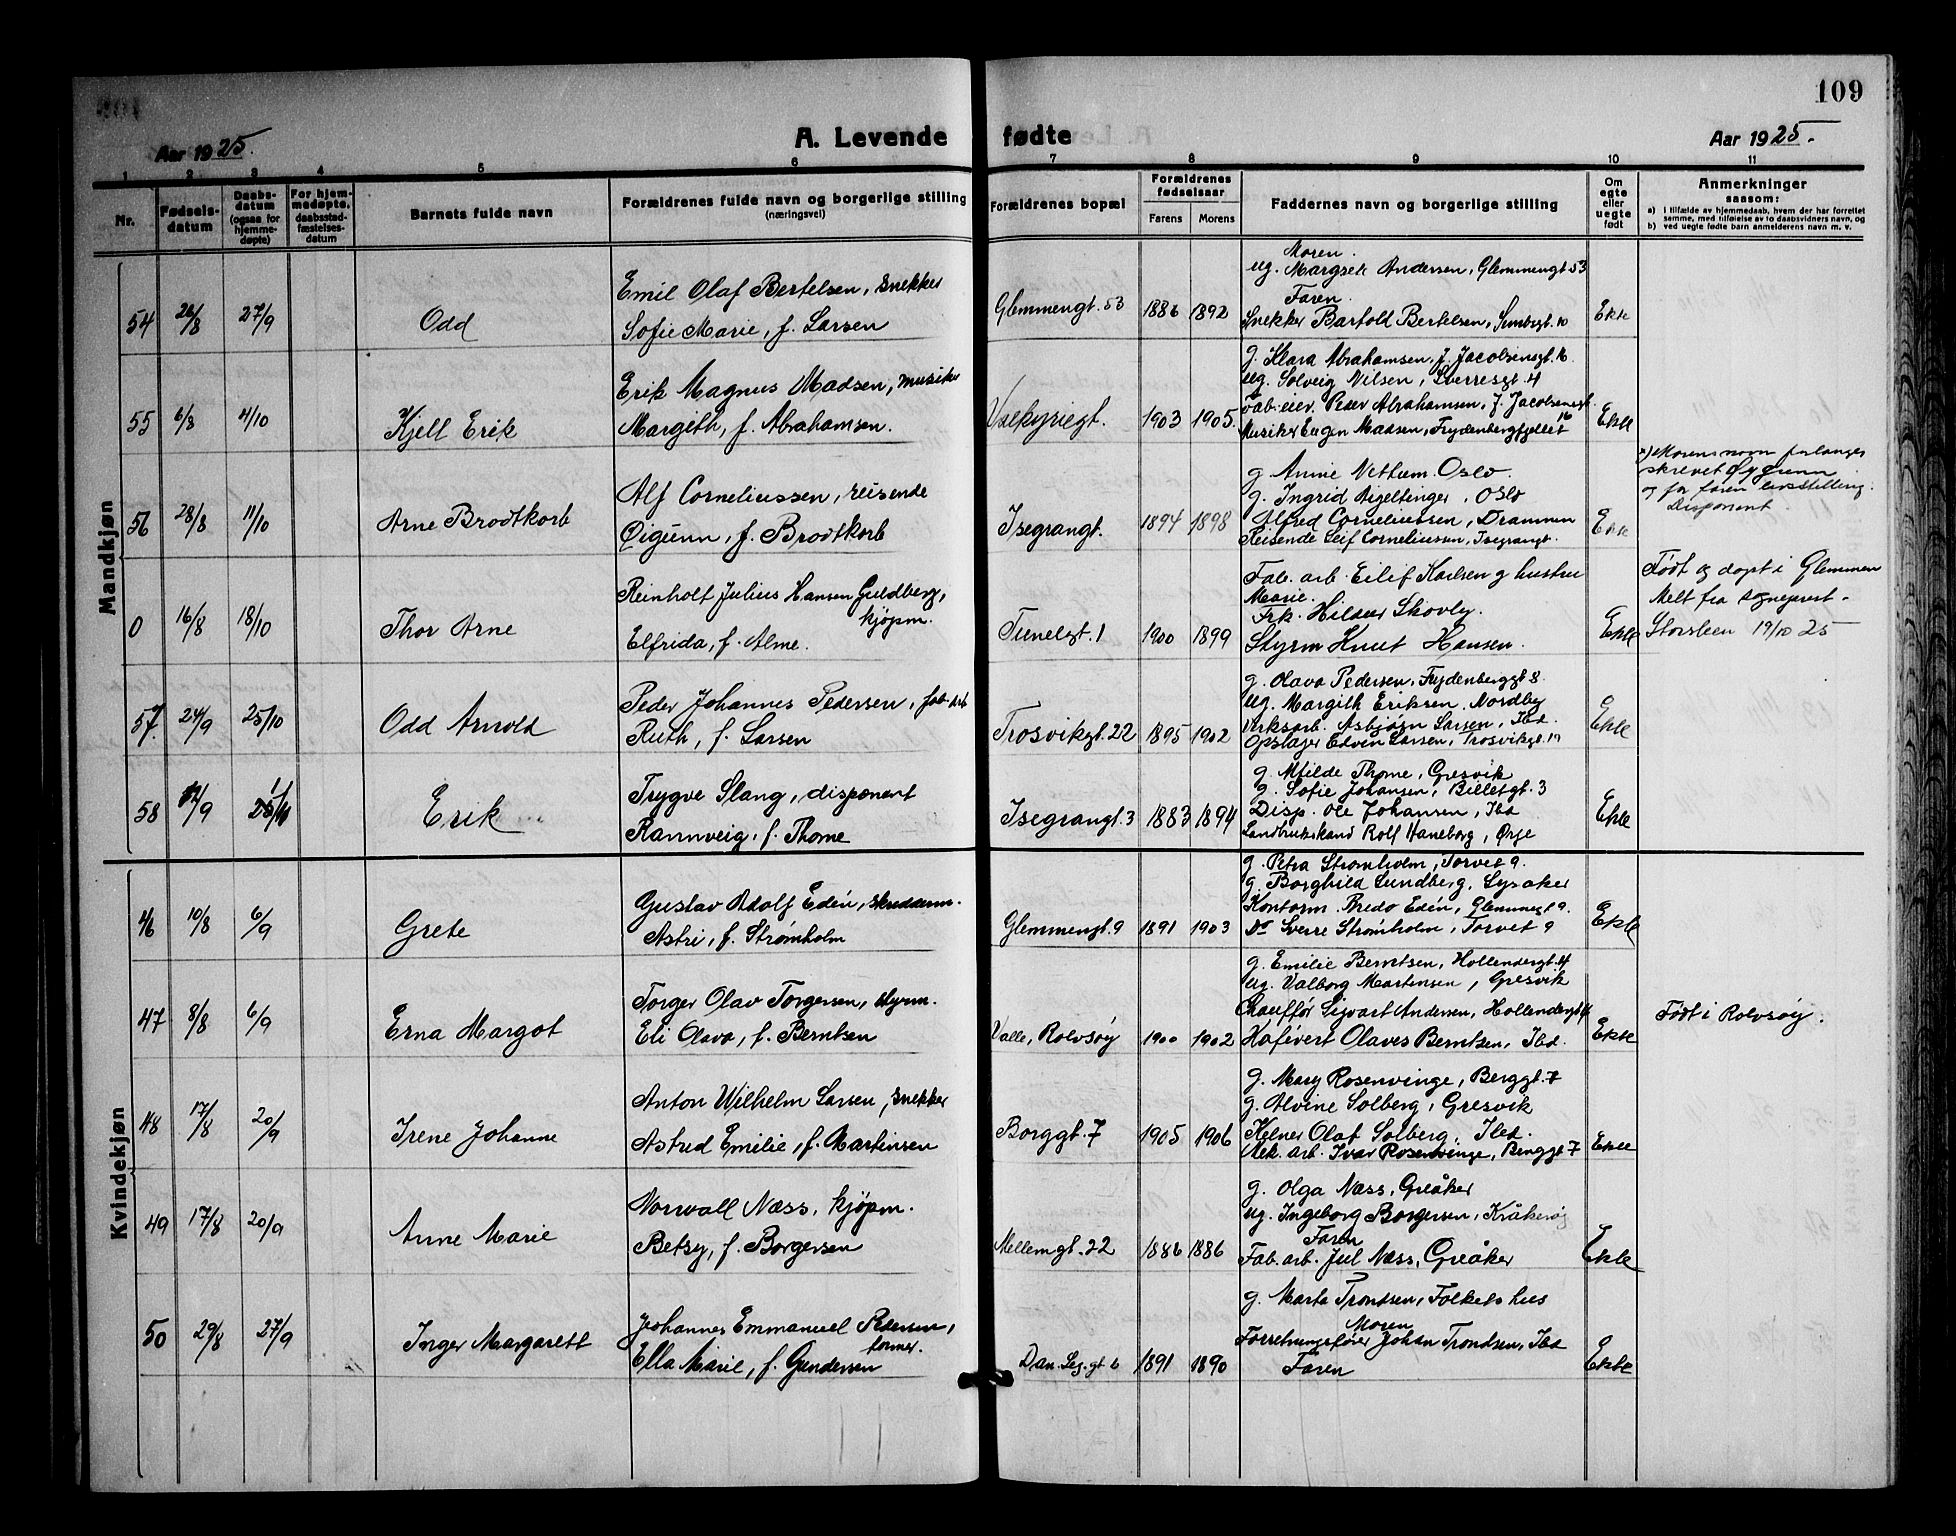 109
Aar 1925.
A. Levende fødte
Aar 1925.
1 2 3 4 5 6 7 8 9 10 11
Nr.
Fødselsdatum
Daabsdatum (ogsaa for hjemmedøpte)
For hjemmedøpte, daabsstadfæstelsesdatum
Barnets fulde navn
Forældrenes fulde navn og borgerlige stilling (næringsvei)
Forældrenes bopæl
Forældrenes fødselsaar
Farens Morens
Faddernes navn og borgerlige stilling
Om egte eller uegte født
Anmerkninger
saasom:
a) i tilfælde av hjemmedaab, hvem der har forrettet samme, med tilføielse av to daabsvidners navn, og
b) ved uegte fødte barn anmelderens navn m. v.
Mandkjøn
54 26/8 27/9 Odd
Emil Olaf Bertelsen, snekker
Sofie Marie, f. Larsen
Glemmengt. 53 1886 1892
Moren.
ug. Margset Andersen, Glemmengt 53
Faren.
Snekker Bartold Bertelsen,
Ekte
55 6/8 4/10 Kjell Erik
Erik Magnus Madsen, musiker
Margith, f. Abrahamsen.
Valkyriegt. 1903 1905.
g. Klara Abrahamsen, J. Jacobsensgt. 16
ug. Solveig Nilsen, Sverresgt. 4
Fab.eier. Peder Abrahamsen, J. Jacobsensgt. 16
Musiker Eugen Madsen, Frydenbergfjellet
Ekte
56 28/8 11/10 Arne Brodtkorb
Alf Corneliussen, reisende
Øigunn, f. Brodtkorb
Isegrangt. 1894 1898
g Annie Oslo.
g. Ingrid Oslo
Alfred Corneliussen, Drammen
Reisende Leif Corneliussen, Isegrangt.
Ekte
x) Morens navn forlanges
skrevet Øygunn
og for faren livsstilling.
Disponent.
0 16/8 18/10 Thor Arne
Reinholt Julius Hansen Guldberg,
kjøpm.
Elfrida, f. Alme.
Tunelgt. 1 1900 1899
Fab. arb. Eilif Karlsen g hustru
Marie.
Frk. Hildur Skovly.
Styrm Knut Hansen.
Ekte
Født og døpt i Glemmen
Melt fra sogneprest
Storsteen 19/10 25
57. 24/9 25/10 Odd Arnold
Peder Johannes Pedersen, fab-arb
Ruth, f. Larsen
Trosvikgt. 22 1895 1902
g. Olava Pedersen, Frydenberggt 8.
ug. Margith Eriksen. Nordby
Verksarb. Asbjørn Larsen, Ibd.
Opslager Edvin Larsen, Trosvikgt.
Ekte
58 /9 Erik
Trygve Slang, disponent
Rannveig, f. Thome
Isegrangt. 3 1883 1894
g. Milde Thome, Gresvik
g. Sofie Johansen, Billetgt. 3
Disp. Ole Johansen, Ibd
Landbrukskand Rolf Haneborg, Ørje
Ekte
Kvindekjøn
46 10/8 6/9 Grete
Gustav Adolf Edén, skredderm.
Astri, f. Strømholm
Glemmengt. 9 1891 1903
g. Petra Strømholm, Torvet 9.
g. Borghild Lundberg, Lysaker
Kontorm. Fredo Edén, Glemmegt 9.
Do Sverre Strømholm, Torvet 9
Ekte
47 8/8 6/9 Erna Margot
Torger Olav Torgersen, styrm.
Eli Olava, f. Berntsen
Valle, Rolvsøy 1900 1902
g. Emilie Berntsen, Hollendergt. 4
ug. Valborg Martinsen, Gresvik
Chauffør Sigvart Andersen, Hollendergt 4
Hafivert Olaves Berntsen, Ibd.
Ekte
Født i Rolvsøy.
48 17/8 20/9 Irene Johanne
Anton Wilhelm Larsen, snekker
Astrid Emilie, f. Martinsen
Borggt. 7 1905 1906
g. Mary Rosenvinge, Berggt. 7
g. Alvine Solberg, Gresvik
Kelner Olaf Solberg, Ibd.
Mek. arb. Ivar Rosenvinge, Berggt 7
Ekte
49 17/8 20/9 Anne Marie
Norvall Næss, kjøpm.
Betsy, f. Borgersen
Mellemgt. 22 1886 1886
g. Olga Næss, Greåker
ug. Ingeborg Borgersen, Kråkerøy
Faren
Fab. arb. Jul Næss, Greåker
Ekte
50 29/8 27/9 Inger Margarett
Johannes Emmanuel Pedersen,
former.
Ella Marie, f. Gundersen
Dan. Leg. gt 6 1891 1890
g. Marta Trondsen, Folkets hus
Moren
Forretningsfører Johan Trondsen, Ibd
Faren
Ekte